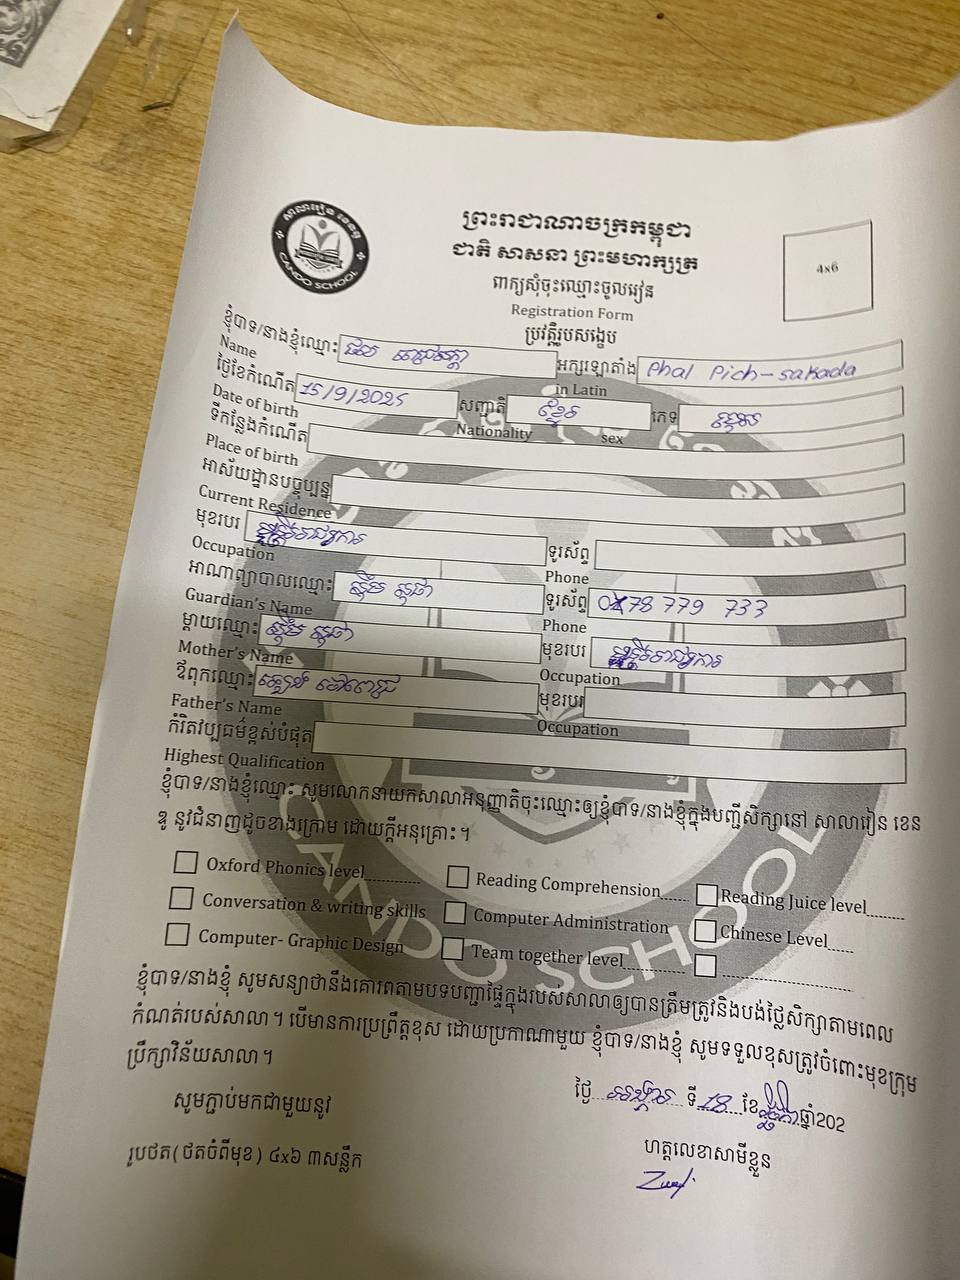 សាលារៀន ខេនឌូ
CANDO SCHOOL
ព្រះរាជាណាចក្រកម្ពុជា
ជាតិ សាសនា ព្រះមហាក្សត្រ
ពាក្យសុំចុះឈ្មោះចូលរៀន
Registration Form
ប្រវត្តិរូបសង្ខេប
4x6
ខ្ញុំបាទ/នាងខ្ញុំឈ្មោះ ផល ពេជ្រសក្កដា អក្សរឡាតាំង Phal Pich-sakada
Name in Latin
ថ្ងៃខែកំណើត 15/9/2025 សញ្ជាតិ ខ្មែរ ភេទ
Date of birth Nationality sex
ទីកន្លែងកំណើត
Place of birth
អាស័យដ្ឋានបច្ចុប្បន្ន
Current Residence
មុខរបរ មន្ត្រីរាជការ ទូរស័ព្ទ
Occupation Phone
អាណាព្យាបាលឈ្មោះ ស៊ឹម សុផា ទូរស័ព្ទ 078 779 733
Guardian's Name Phone
ម្តាយឈ្មោះ ស៊ឹម សុផា មុខរបរ មន្ត្រីរាជការ
Mother's Name Occupation
ឪពុកឈ្មោះ មុខរបរ
Father's Name Occupation
កំរិតវប្បធម៌ខ្ពស់បំផុត
Highest Qualification
ខ្ញុំបាទ/នាងខ្ញុំឈ្មោះ សូមលោកនាយកសាលាអនុញ្ញាតិចុះឈ្មោះឲ្យខ្ញុំបាទ/នាងខ្ញុំក្នុងបញ្ជីសិក្សានៅ សាលារៀន ខេន
ឌូ នូវជំនាញដូចខាងក្រោម ដោយក្តីអនុគ្រោះ។
Oxford Phonics level............ Reading Comprehension...... Reading Juice level........
Conversation & writing skills Computer Administration Chinese Level.....
Computer- Graphic Design Team together level............
CANDO SCHOOL
ខ្ញុំបាទ/នាងខ្ញុំ សូមសន្យាថានឹងគោរពតាមបទបញ្ជាផ្ទៃក្នុងរបស់សាលាឲ្យបានត្រឹមត្រូវនិងបង់ថ្លៃសិក្សាតាមពេល
កំណត់របស់សាលា។ បើមានការប្រព្រឹត្តខុស ដោយប្រកាណាមួយ ខ្ញុំបាទ/នាងខ្ញុំ សូមទទួលខុសត្រូវចំពោះមុខក្រុម
ប្រឹក្សាវិន័យសាលា។
ថ្ងៃ អង្គារ ទី 18 ខែ ឆ្នាំ202
សូមភ្ជាប់មកជាមួយនូវ
ហត្ថលេខាសាមីខ្លួន
រូបថត(ថតចំពីមុខ) ៤x៦ ៣សន្លឹក